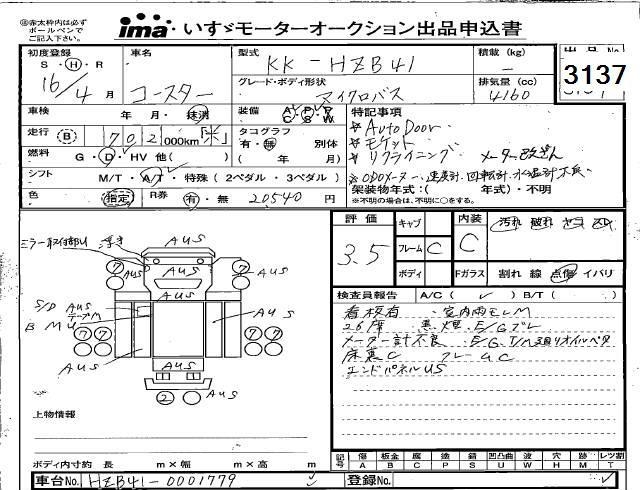 ㊟赤太枠内は必ず
ボールペンで
ご記入下さい。
ima いすゞモーターオークション出品申込書
初度登録 S・H・R 16/4月
車名 コースター
型式 KK-HZB41
積載 (kg) −
出品No. 3137
グレード・ボディ形状 マイクロバス
排気量 (cc) 4160
車検 年 月・抹消
装備 A P P C S W
特記事項
走行 (B) 702 000km 「米」
タコグラフ 有・無 別体
( 年 月)
* Auto Door
* モケット
* リクライニング メーター改ざん
燃料 G・D・HV 他( )
シフト M/T・A/T・特殊(2ペダル・3ペダル)
※ODOメーター、速度計、回転計、水温計不良
架装物年式:( 年式)・不明
※不明の場合は、不明に○をする。
色 (指定) R券 有・無 20540 円
評価 3.5
キャブ
フレーム C
ボディ
内装 C
汚れ 破れ ヤニ スレ
Fガラス 割れ 線 点傷 イバリ
検査員報告 A/C( ✓ ) B/T( )
看板有 室内雨モレM
26席 黒煙 E/Gブレ
メーター計不良 E/G、T/M廻りオイルベタ
床裏C フレームC
エンドパネルUS
AUS
ミラー取付部U 浮き
AUS
⑦ ⑦
AUS AUS
S/D AUS
テープM
BMU
AUS
⑦⑦ ⑦⑦
AUS AUS
AUS
② AUS
上物情報
ボディ内寸約 長 m×幅 m×高 m
記号 傷A 板金B 腐C 塗P 錆S 凹凸曲U 波W 穴H 跡M レツ割T
車台No. HZB41-0001779
登録No.